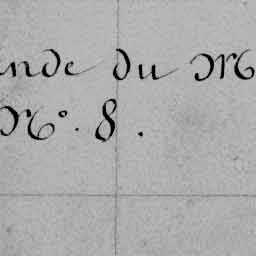 ande du M
N°. 8.